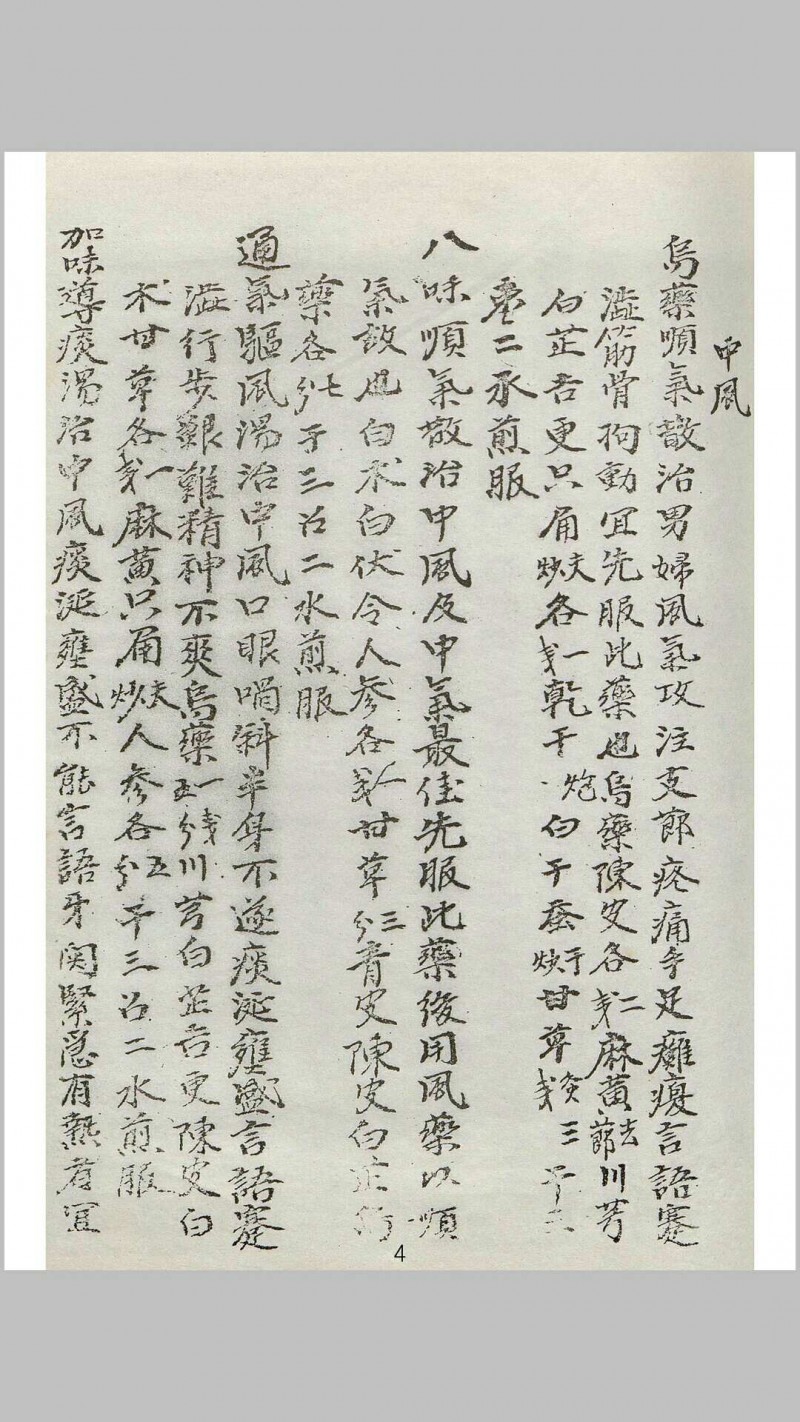 中風
烏藥順氣散治男婦風氣攻注支節疼痛手足癱瘓言語蹇
澁筋骨拘動宜先服此藥也烏藥陳皮各二戔麻黃去節川芎
白芷吉更只角炒夫各一戔乾干炮白干蚕炒干甘草灸戔三干三
枣二水煎服
八味順氣散治中風及中氣最佳先服此藥後用風藥以順
氣故也白朮白伏令人參各一戔甘草三分青皮陳皮白芷
藥各七分干三召二水煎服
通氣驅風湯治中風口眼喎斜半身不遂痰涎壅盛言語蹇
澁行步艱難精神不爽烏藥一戔五分川芎白芷吉更陳皮白
朮甘草各一戔麻黃只角炒夫人參各五分干三召二水煎服
加味導痰湯治中風痰涎壅盛不能言語牙関緊急有熱者宜
4